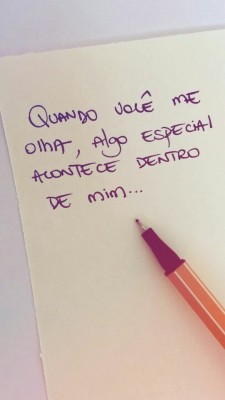 QUANDO VOCÊ ME
OlHA, Algo ESPECIAl
ACONTECE DENTRO
DE mim...